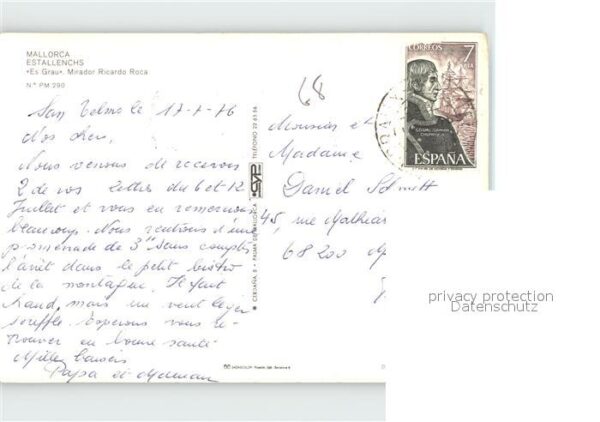 MALLORCA
ESTALLENCHS
«Es Grau». Mirador Ricardo Roca
N.º PM 290
San Telmo le 17-7-76
Nous venons de recevoir
2 de vos lettres du 6 et 12
Juillet et vous en remercions
beaucoup. Nous rentrons d'une
promenade de 3 sans compter
l'arrêt dans le petit bistro
de la montagne. Il fait
chaud, mais un vent léger
souffle. Espérons vous re-
trouver en bonne santé
Milles baisers
Papa et Maman
68
Monsieur et
Madame
Daniel Schmitt
45, rue Mathias
68200
CORREOS 7
PTA
ESPAÑA
TELEFONO 22 61 56
GYP
CERDAÑA, 8 - PALMA DE MALLORCA
privacy protection
Datenschutz